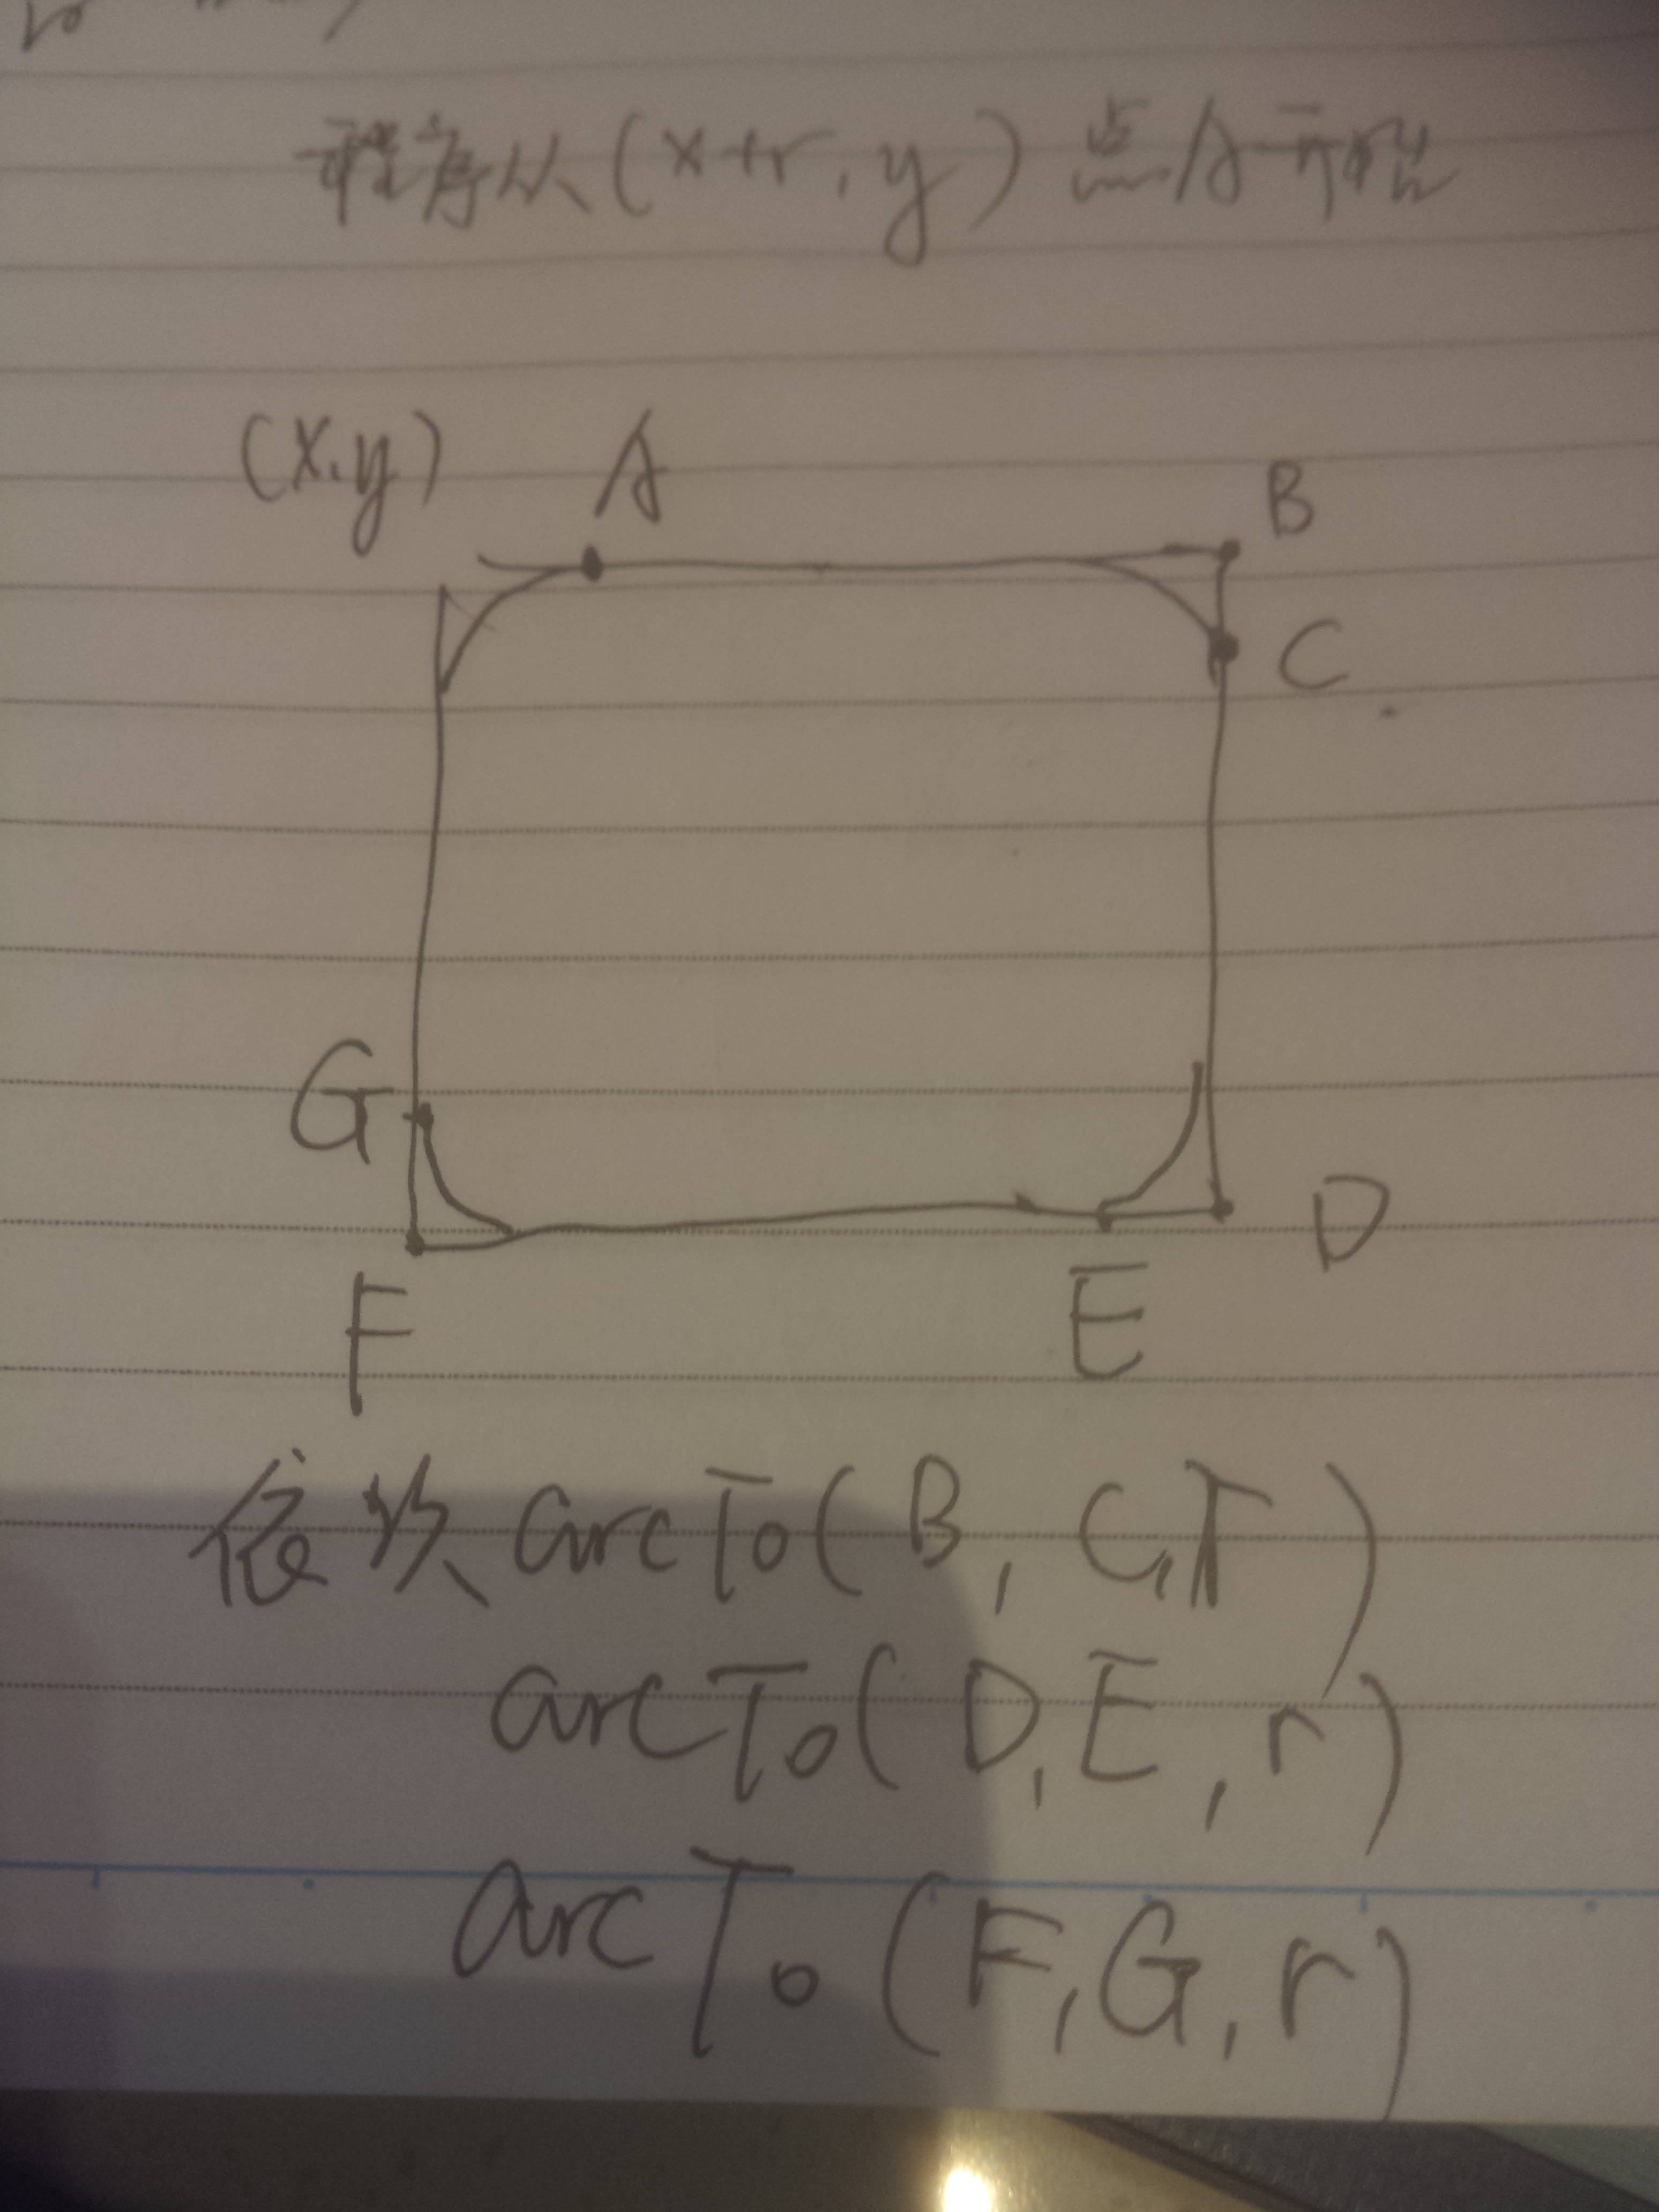 程序从(x+r,y)点A开始
(x,y) A
B
C
G
D
F E
依次 arcTo(B, C, r)
arcTo(D, E, r)
arcTo(F, G, r)